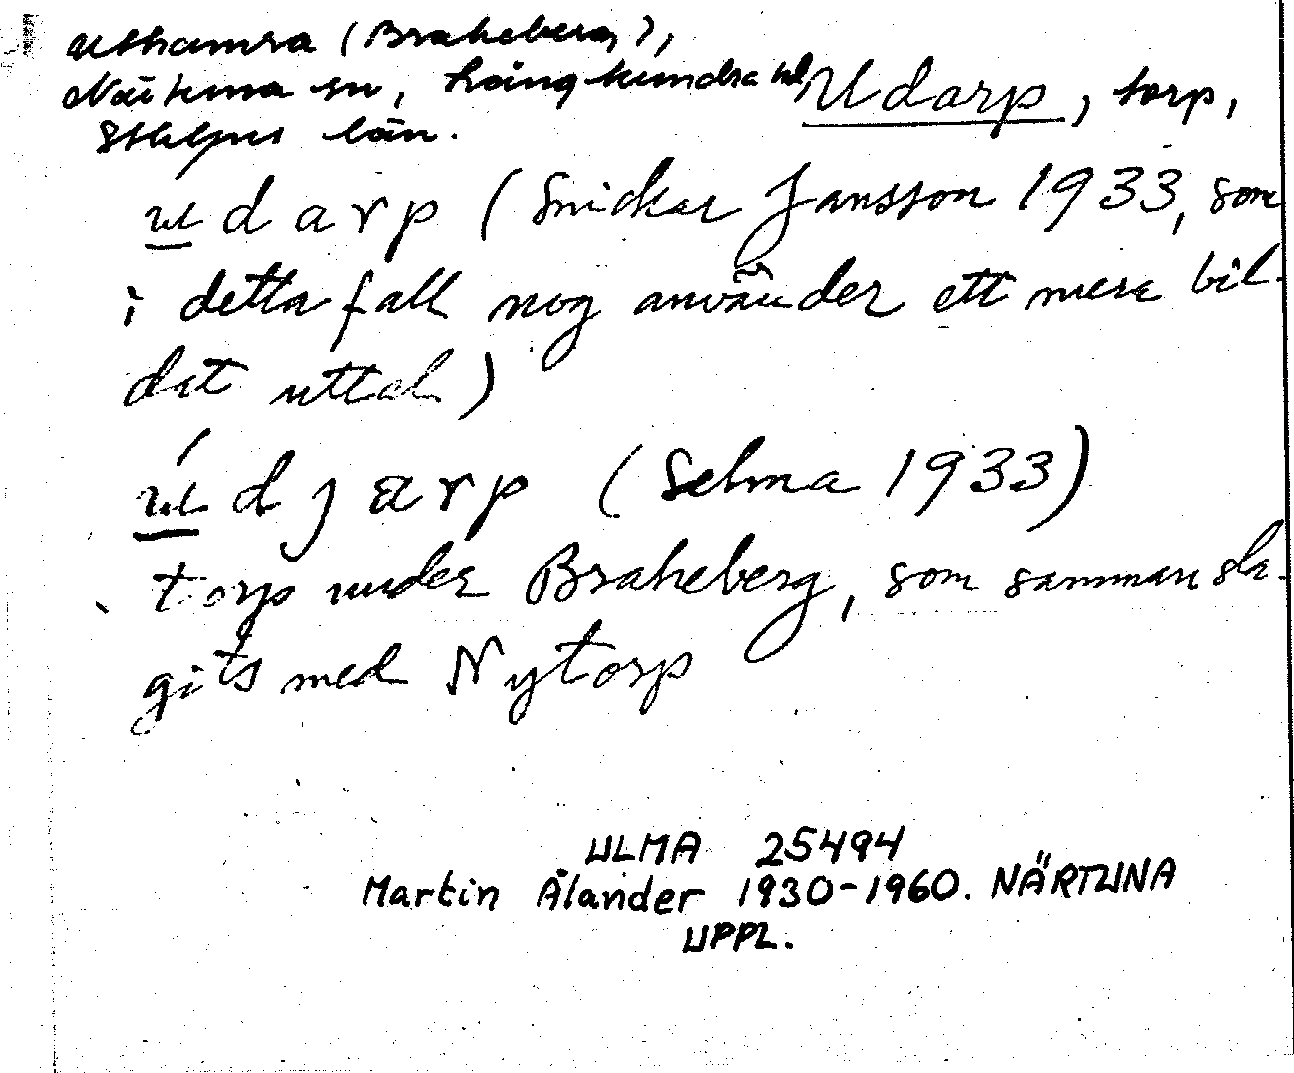 Uthamra (Braheberg),
Närtuna sn, Långhundra hd,
Sthlms län.
Udarp, torp,
u d a r p (Snickar Jansson 1933, som
i detta fall nog använder ett mera bil-
dat uttal)
ú d j a r p (Selma 1933)
torp under Braheberg, som samman sla-
gits med Nytorp
ULMA 25494
Martin Ålander 1930-1960. NÄRTUNA
UPPL.